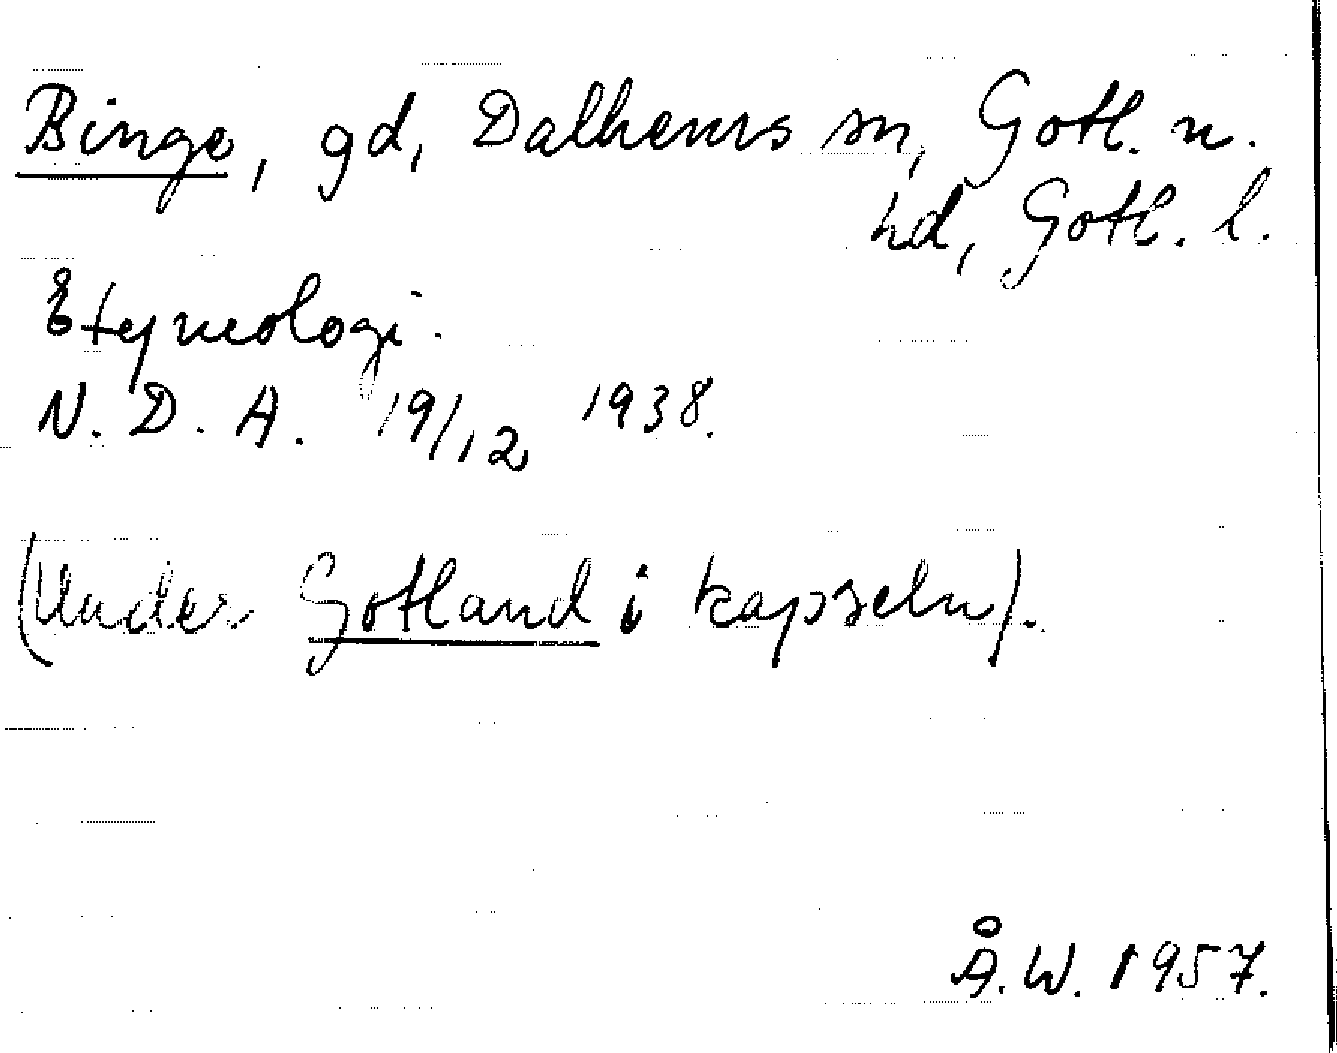 Binge, gd, Dalhems sn, Gotl. n.
hd, Gotl. l.
Etymologi.
N. D. A. 19/12 1938.
(Under Gotland i kapseln).
Å. W. 1957.